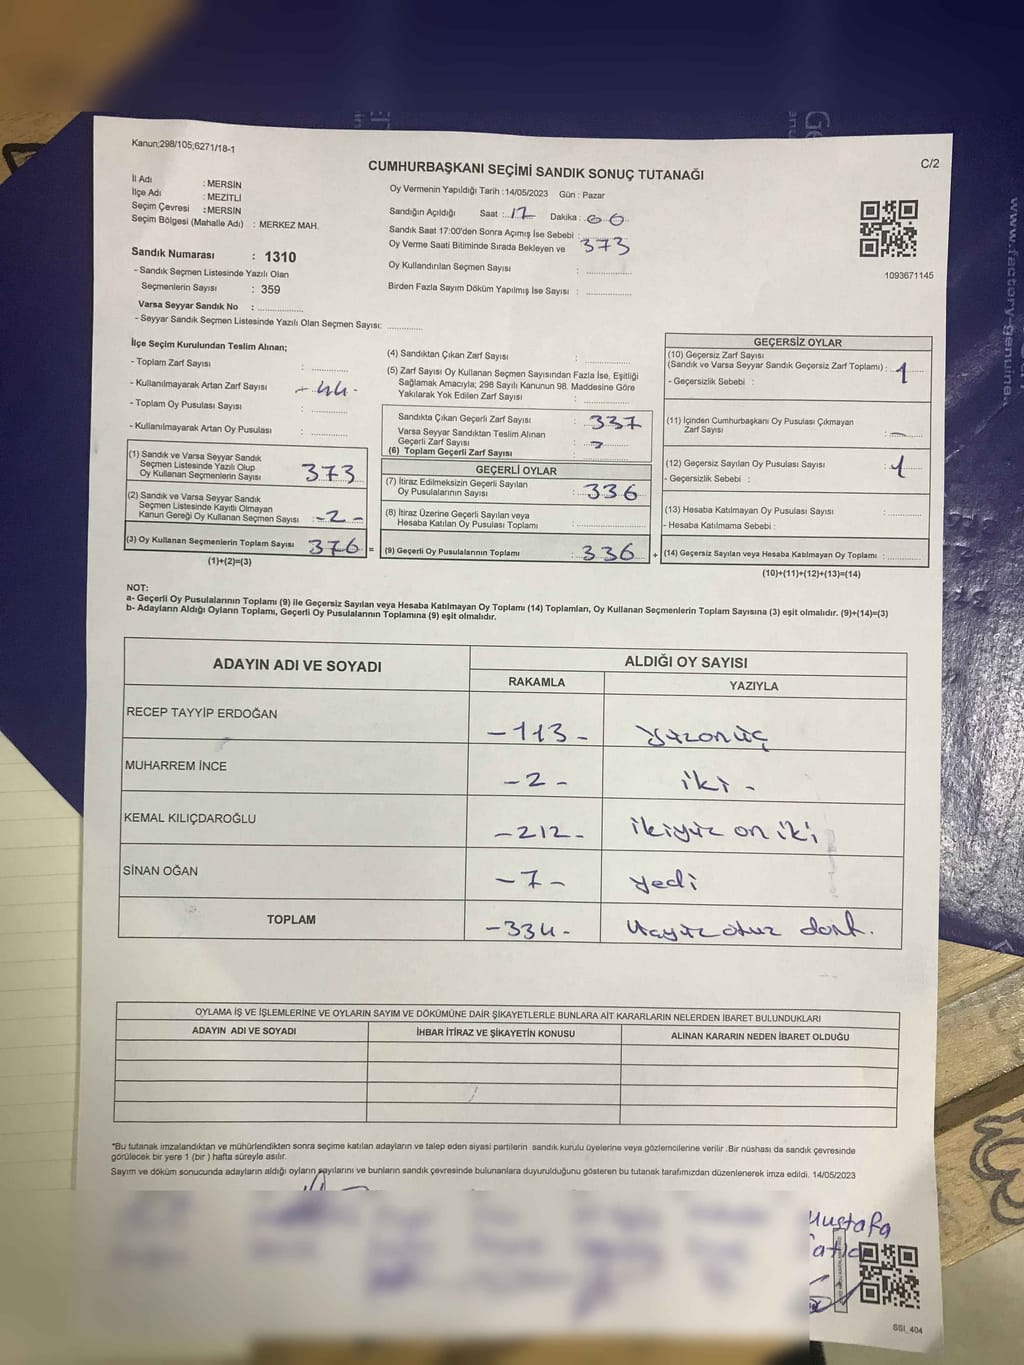 Kanun;298/105;6271/18-1
CUMHURBAŞKANI SEÇİMİ SANDIK SONUÇ TUTANAĞI
C/2
İl Adı : MERSİN
İlçe Adı : MEZİTLİ
Seçim Çevresi : MERSİN
Seçim Bölgesi (Mahalle Adı) : MERKEZ MAH.
Sandık Numarası : 1310
- Sandık Seçmen Listesinde Yazılı Olan
Seçmenlerin Sayısı : 359
Varsa Seyyar Sandık No :
- Seyyar Sandık Seçmen Listesinde Yazılı Olan Seçmen Sayısı:
Oy Vermenin Yapıldığı Tarih : 14/05/2023 Gün : Pazar
Sandığın Açıldığı Saat : 17 Dakika : 00
Sandık Saat 17:00'den Sonra Açımış İse Sebebi :
Oy Verme Saati Bitiminde Sırada Bekleyen ve 373
Oy Kullandırılan Seçmen Sayısı :
Birden Fazla Sayım Döküm Yapılmış İse Sayısı :
1093671145
İlçe Seçim Kurulundan Teslim Alınan;
- Toplam Zarf Sayısı :
- Kullanılmayarak Artan Zarf Sayısı - 44 -
- Toplam Oy Pusulası Sayısı :
- Kullanılmayarak Artan Oy Pusulası :
(1) Sandık ve Varsa Seyyar Sandık
Seçmen Listesinde Yazılı Olup
Oy Kullanan Seçmenlerin Sayısı 373
(2) Sandık ve Varsa Seyyar Sandık
Seçmen Listesinde Kayıtlı Olmayan
Kanun Gereği Oy Kullanan Seçmen Sayısı : - 2 -
(3) Oy Kullanan Seçmenlerin Toplam Sayısı 376 =
(1)+(2)=(3)
(4) Sandıktan Çıkan Zarf Sayısı :
(5) Zarf Sayısı Oy Kullanan Seçmen Sayısından Fazla İse, Eşitliği
Sağlamak Amacıyla; 298 Sayılı Kanunun 98. Maddesine Göre
Yakılarak Yok Edilen Zarf Sayısı :
Sandıkta Çıkan Geçerli Zarf Sayısı : 337
Varsa Seyyar Sandıktan Teslim Alınan
Geçerli Zarf Sayısı :
(6) Toplam Geçerli Zarf Sayısı :
GEÇERLİ OYLAR
(7) İtiraz Edilmeksizin Geçerli Sayılan
Oy Pusulalarının Sayısı : 336
(8) İtiraz Üzerine Geçerli Sayılan veya
Hesaba Katılan Oy Pusulası Toplamı :
(9) Geçerli Oy Pusulalarının Toplamı : 336 +
GEÇERSİZ OYLAR
(10) Geçersiz Zarf Sayısı
(Sandık ve Varsa Seyyar Sandık Geçersiz Zarf Toplamı) : 1
- Geçersizlik Sebebi :
(11) İçinden Cumhurbaşkanı Oy Pusulası Çıkmayan
Zarf Sayısı : -
(12) Geçersiz Sayılan Oy Pusulası Sayısı : 1
- Geçersizlik Sebebi :
(13) Hesaba Katılmayan Oy Pusulası Sayısı :
- Hesaba Katılmama Sebebi :
(14) Geçersiz Sayılan veya Hesaba Katılmayan Oy Toplamı :
(10)+(11)+(12)+(13)=(14)
NOT:
a- Geçerli Oy Pusulalarının Toplamı (9) ile Geçersiz Sayılan veya Hesaba Katılmayan Oy Toplamı (14) Toplamları, Oy Kullanan Seçmenlerin Toplam Sayısına (3) eşit olmalıdır. (9)+(14)=(3)
b- Adayların Aldığı Oyların Toplamı, Geçerli Oy Pusulalarının Toplamına (9) eşit olmalıdır.
ADAYIN ADI VE SOYADI ALDIĞI OY SAYISI
RAKAMLA YAZIYLA
RECEP TAYYİP ERDOĞAN -113- yüzonüç
MUHARREM İNCE -2- iki -
KEMAL KILIÇDAROĞLU -212- ikiyüz on iki
SİNAN OĞAN -7- yedi
TOPLAM -334- üçyüz otuz dört.
OYLAMA İŞ VE İŞLEMLERİNE VE OYLARIN SAYIM VE DÖKÜMÜNE DAİR ŞİKAYETLERLE BUNLARA AİT KARARLARIN NELERDEN İBARET BULUNDUKLARI
ADAYIN ADI VE SOYADI İHBAR İTİRAZ VE ŞİKAYETİN KONUSU ALINAN KARARIN NEDEN İBARET OLDUĞU
*Bu tutanak imzalandıktan ve mühürlendikten sonra seçime katılan adayların ve talep eden siyasi partilerin sandık kurulu üyelerine veya gözlemcilerine verilir .Bir nüshası da sandık çevresinde
görülecek bir yere 1 (bir ) hafta süreyle asılır.
Sayım ve döküm sonucunda adayların aldığı oyların sayılarını ve bunların sandık çevresinde bulunanlara duyurulduğunu gösteren bu tutanak tarafımızdan düzenlenerek imza edildi. 14/05/2023
Mustafa
SSI_404
www.factory-genuine.